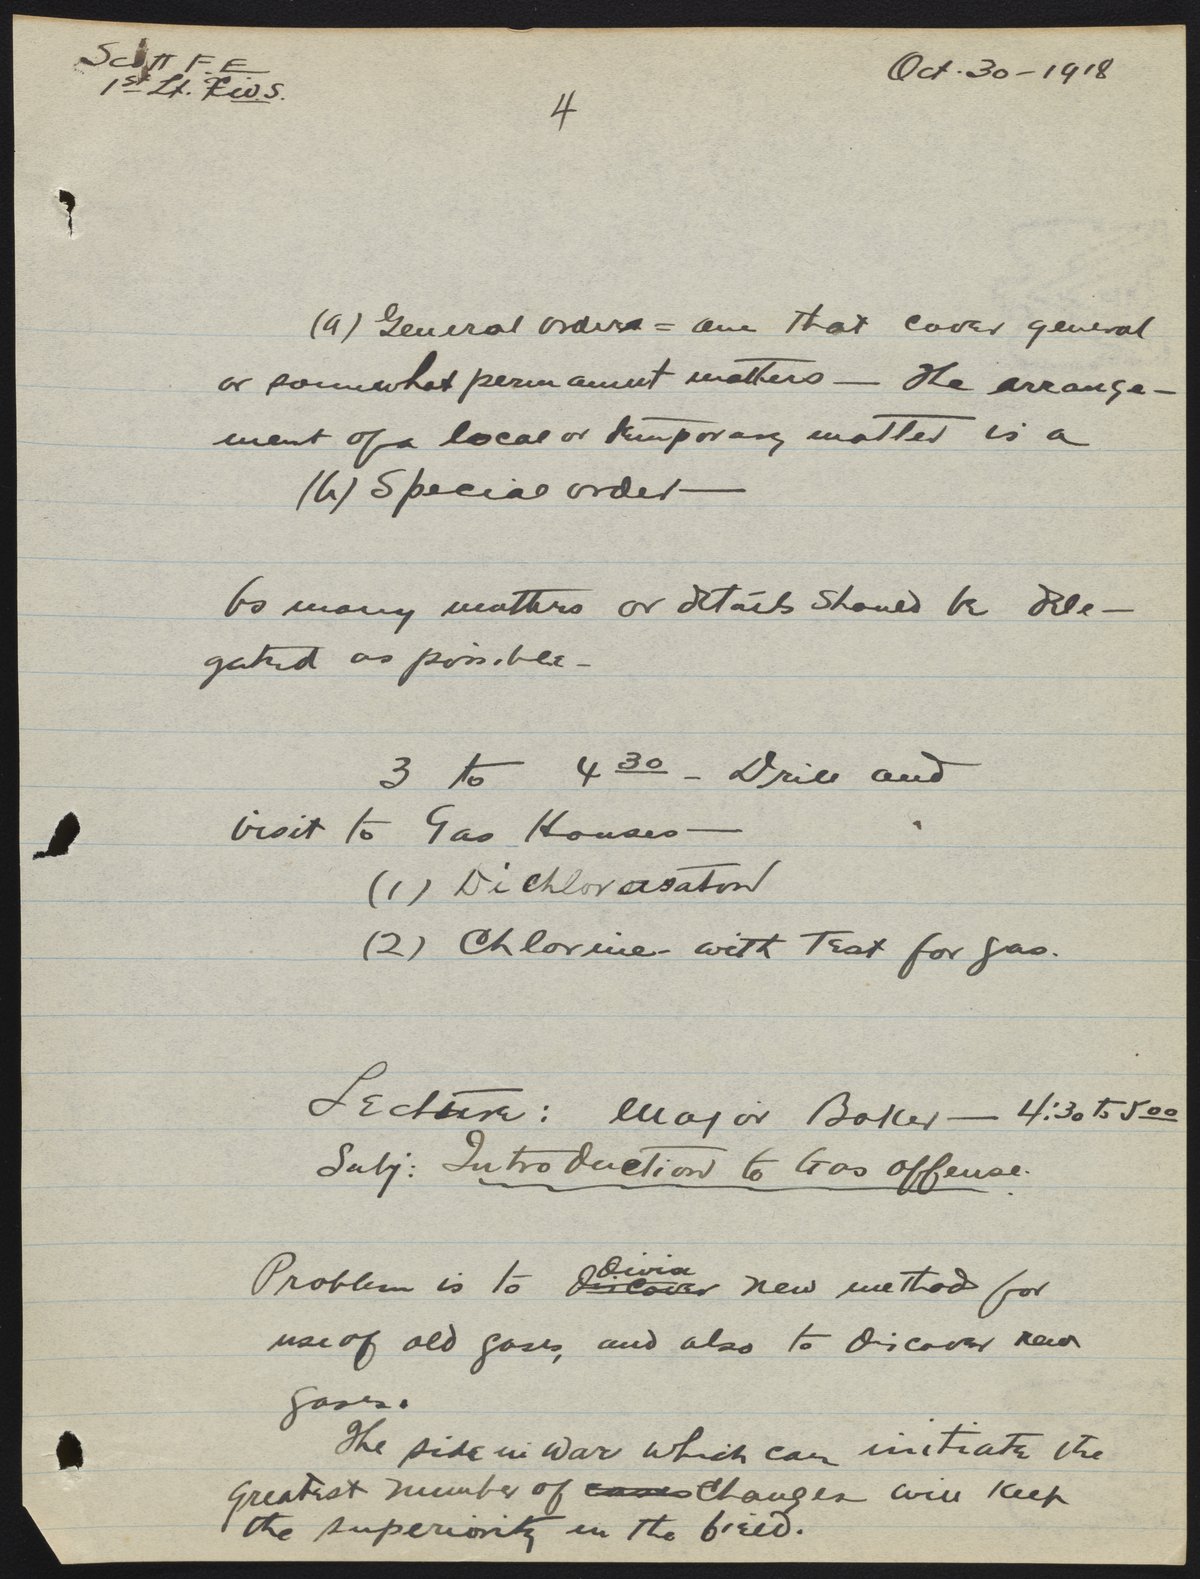 Scott F.E.
1st Lt. F.W.S.
Oct. 30 - 1918
4
(a) General orders = one that cover general
or somewhat permanent matters — The arrange-
ment of a local or temporary matter is a
(b) Special order —
As many matters or details should be dele-
gated as possible -
3 to 4 30 - Drill and
visit to Gas Houses —
(1) Dichlor
(2) Chlorine - with Test for gas.
Lecture: Major Baker — 4:30 to 5 00
Subj: Introduction to Gas offense.
Problem is to discover devise new method for
use of old gases, and also to discover new
gases.
The side in war which can initiate the
greatest number of cases changes will keep
the superiority in the field.